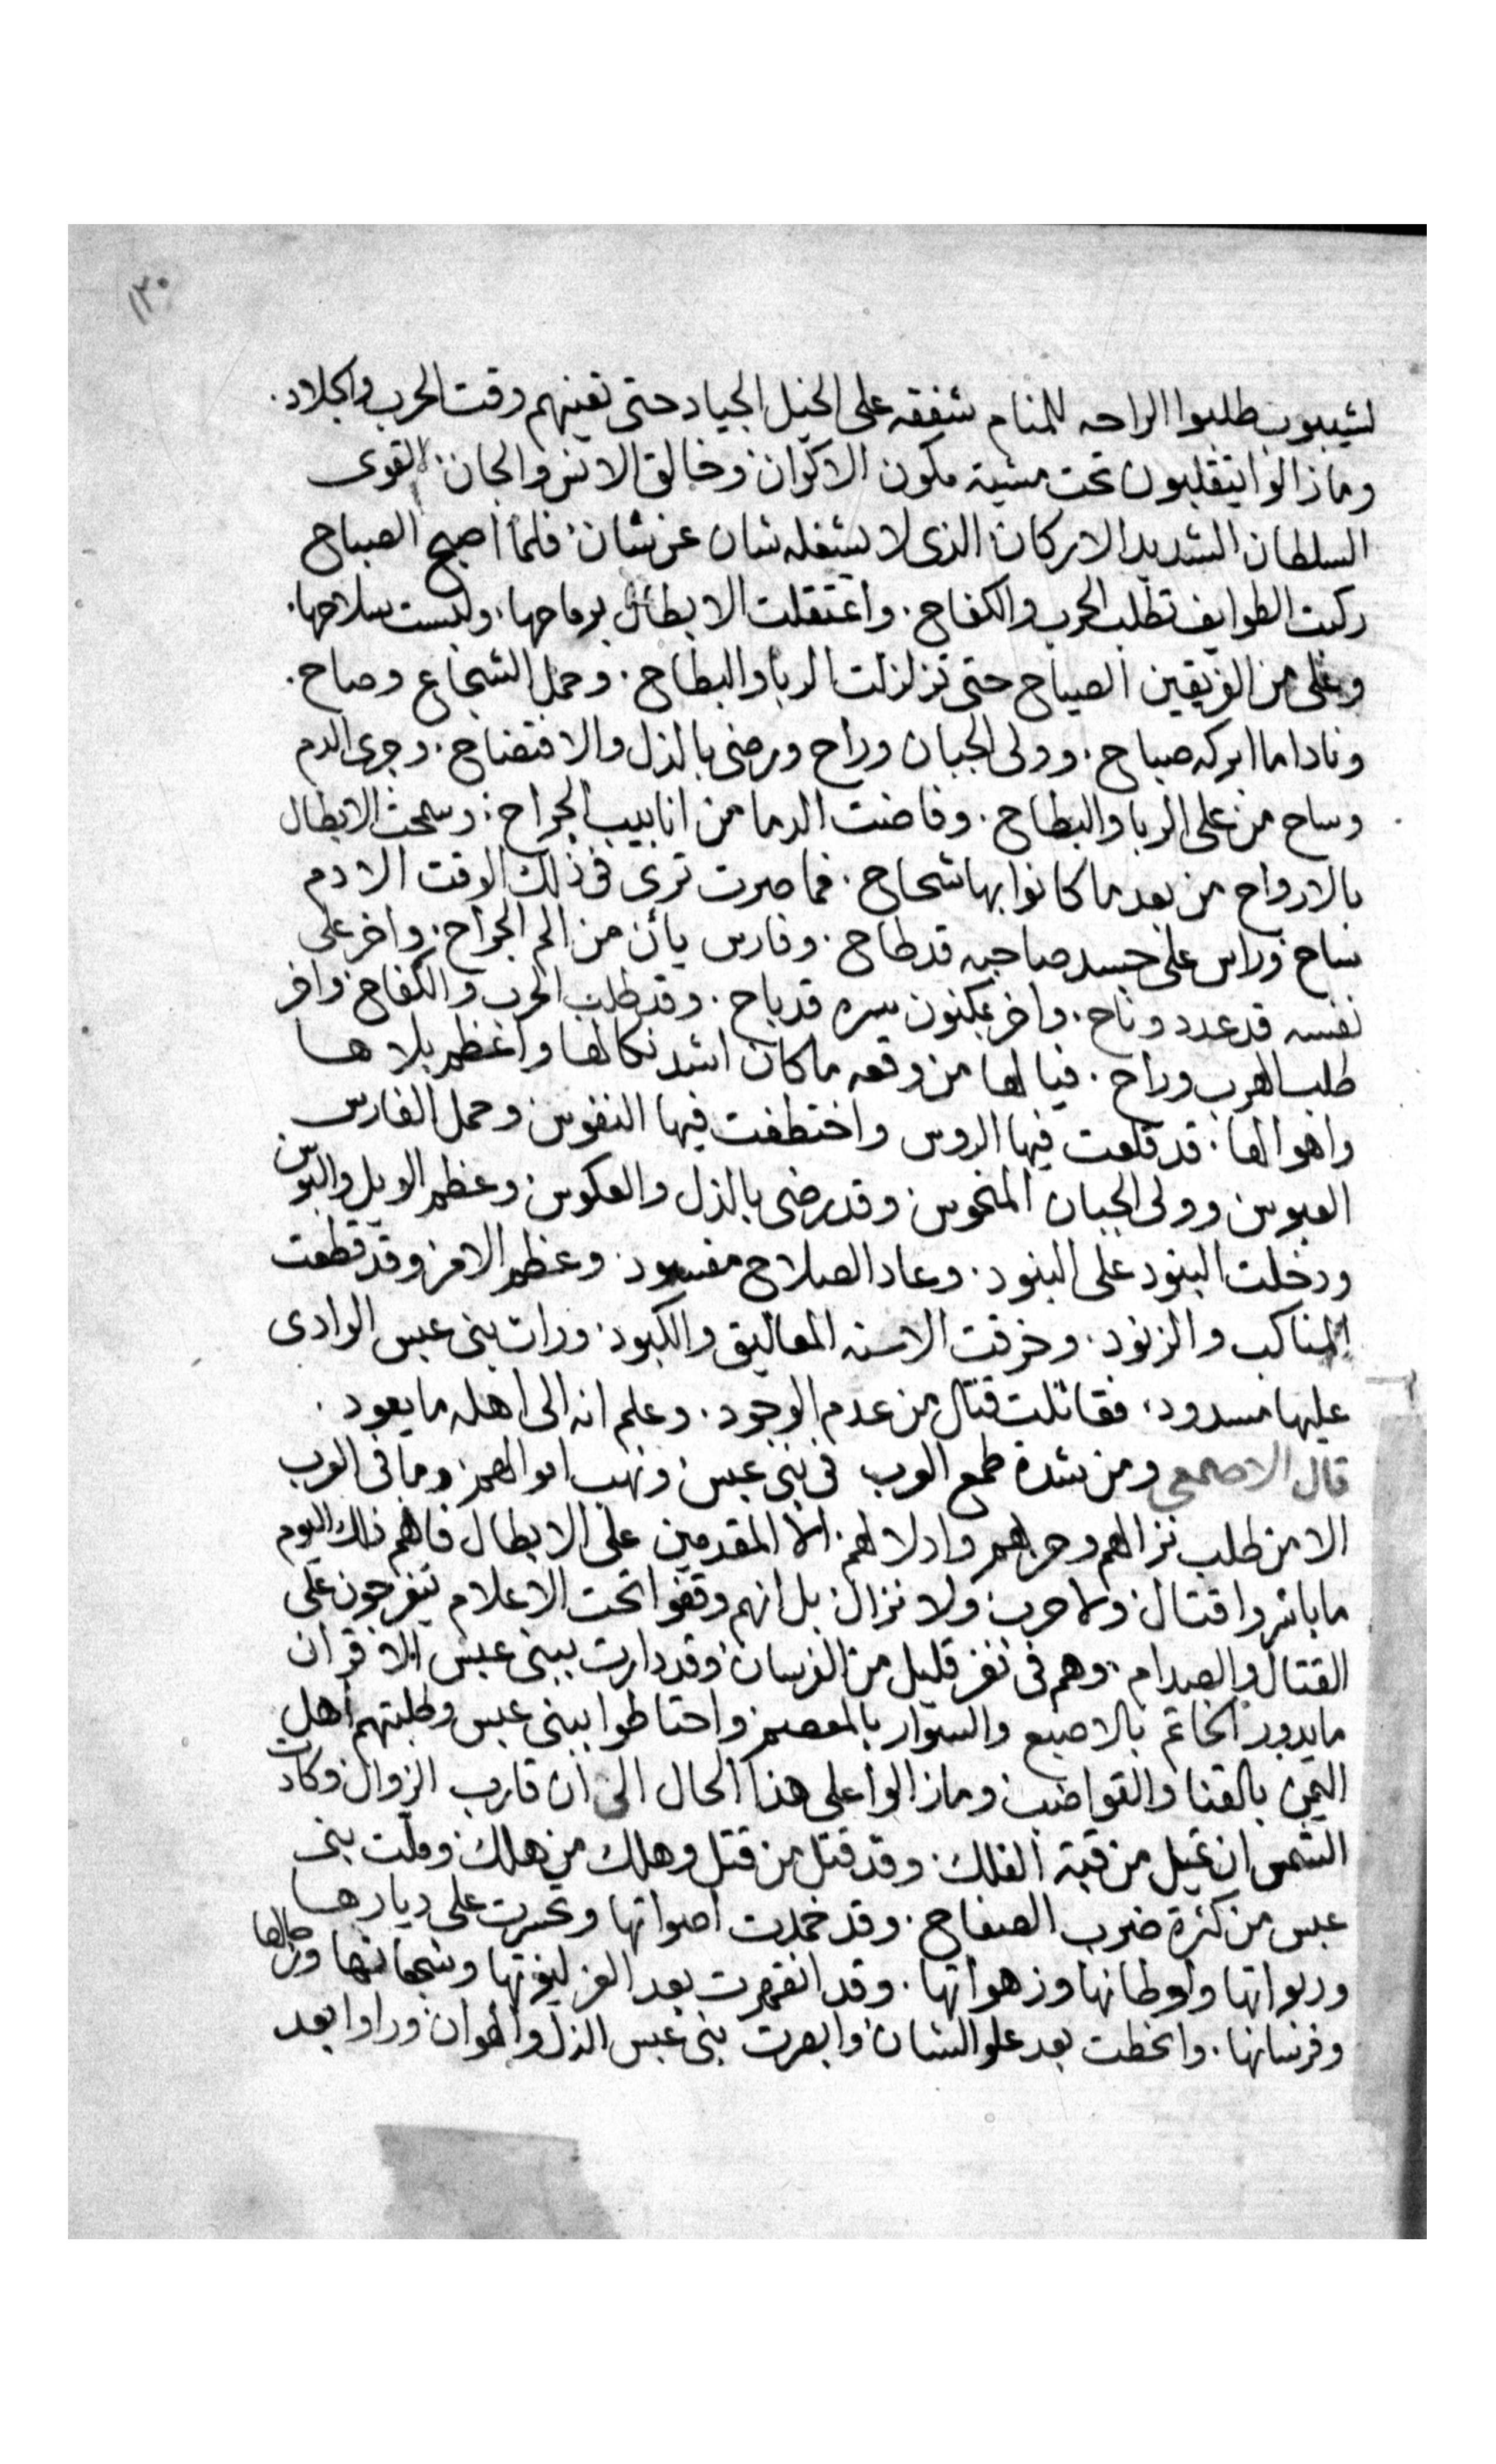 ١٣٠
لشيبوب طلبوا الراحه للمنام شفقه على الخيل الجياد حتى تعينهم وقت الحرب والجلاد.
وما زالوا يتقلبون تحت مشية مكون الاكوان وخالق الانس والجان. القوى
السلطان الشديد الاركان الذى لا يشغله شان عن شان. فلما اصبح الصباح
ركبت الطوايف تطلب الحرب والكفاح. واعتقلت الابطال برماحها. ولبست سلاحها.
وعلى من الفريقين الصياح حتى تزلزلت الربا والبطاح. وحمل الشجاع وصاح.
ونادا ما ابركه صباح. وولى الجبان وراح ورضى بالذل والافتضاح. وجرى الدم
وساح من على الربا والبطاح. وفاضت الدما من انابيب الجراح. وسمحت الابطال
بالارواح من بعد ما كانوا بها شحاح. فما صرت ترى فى ذلك الوقت الا دم
ساح وراس على جسد صاحبه قد طاح. وفارس يأن من الم الجراح. واخر على
نفسه قد عدد وناح. واخر بمكنون سره قد باح. وقد طلب الحرب والكفاح واخر
طلب الهرب وراح. فيا لها من وقعه ما كان اشد نكالها واعظم بلاها
واهوالها. قد قلعت فيها الروس واختطفت فيها النفوس وحمل الفارس
العبوس وولى الجبان المنحوس وقد رضى بالذل والعكوس وعظم الويل والبوس
ودخلت البنود على البنود. وعاد الصلاح مفسود. وعظم الامر وقد قطعت
المناكب والزنود. وخرقت الاسنه المعاليق والكبود. ورات بنى عبس الوادى
عليها مسدود. فقاتلت قتال من عدم الوجود. وعلم انه الى اهله ما يعود.
قال الاصمعي ومن شدة طمع العرب فى بنى عبس ونهب اموالهم وما فى العرب
الا من طلب نزالهم وحربهم واذلالهم. الا المقدمين على الابطال فانهم ذلك اليوم
ما باشروا قتال ولا حرب ولا نزال بل انهم وقفوا تحت الاعلام يتفرجون على
القتال والصدام. وهم فى نفر قليل من الفرسان وقد دارت ببنى عبس الاقران
ما يدور الخاتم بالاصبع والسوار بالمعصم واحتاطوا ببنى عبس وطلبتهم اهل
اليمن بالقنا والقواضب وما زالوا على هذا الحال الى ان قارب الزوال وكادت
الشمس ان تميل من قبة الفلك. وقد قتل من قتل وهلك من هلك وملت بنى
عبس من كثرة ضرب الصفاح. وقد خمدت اصواتها وتحسرت على ديارها
وربواتها واوطانها وزهواتها. وقد انقهرت بعد العز ليوثها وشجعانها ورجالها
وفرسانها. وانحطت بعد علو الشان وابصرت بنى عبس الذل والهوان وراوا بعد